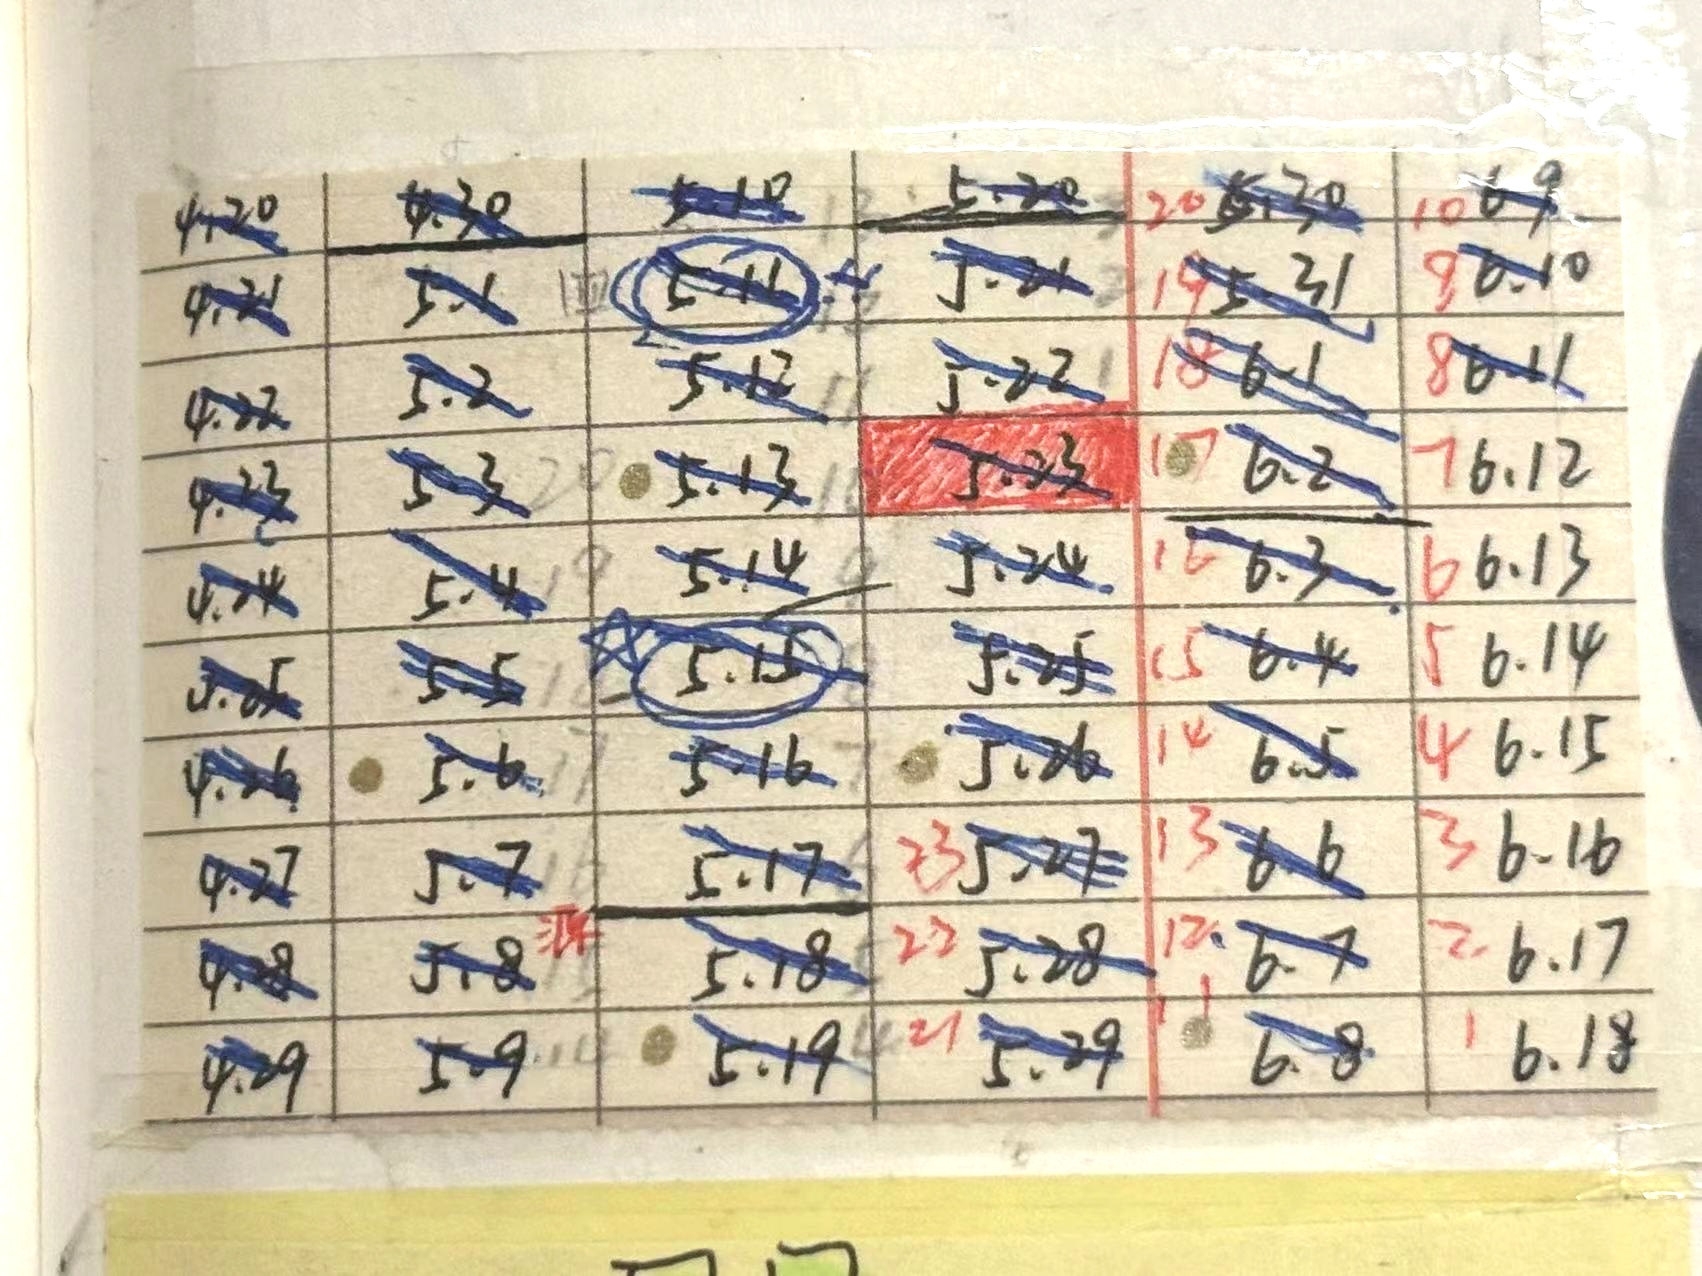 4.20 4.30 5.10 5.20 20 5.30 10 6.9
4.21 5.1 5.11 5.21 19 5.31 9 6.10
4.22 5.2 5.12 11 5.22 1 18 6.1 8 6.11
4.23 5.3 20 5.13 5.23 17 6.2 7 6.12
4.24 5.4 19 5.14 9 5.24 16 6.3 6 6.13
4.25 5.5 18 5.15 5.25 15 6.4 5 6.14
4.26 5.6 17 5.16 7 5.26 14 6.5 4 6.15
4.27 5.7 16 5.17 23 5.27 13 6.6 3 6.16
4.28 5.8 5.18 22 5.28 12 6.7 2 6.17
4.29 5.9 5.19 21 5.29 11 6.8 1 6.18